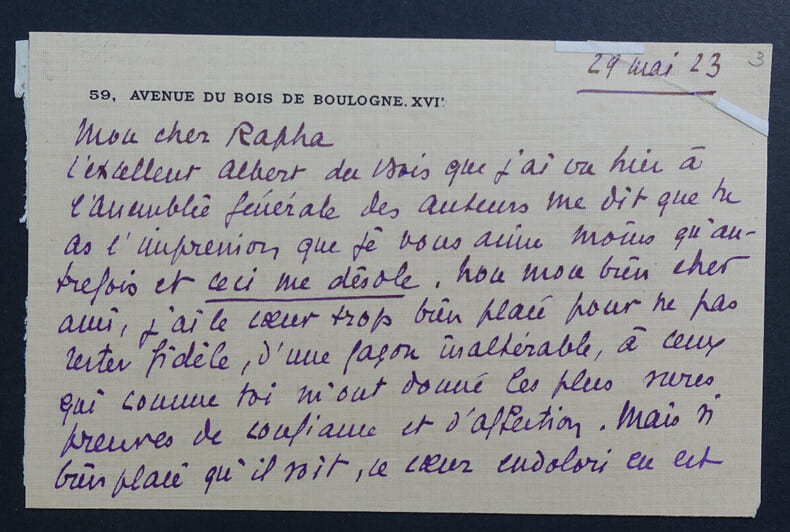 29 mai 23
3
59, AVENUE DU BOIS DE BOULOGNE. XVIᵉ.
Mon cher Rapha
L'excellent Albert du Bois que j'ai vu hier à
l'Assemblée Générale des auteurs me dit que tu
as l'impression que je vous aime moins qu'au-
trefois et ceci me désole. Non mon bien cher
ami, j'ai le cœur trop bien placé pour ne pas
rester fidèle, d'une façon inaltérable, à ceux
qui comme toi m'ont donné les plus sures
preuves de confiance et d'affection. Mais si
bien placé qu'il soit, ce cœur endolori en est